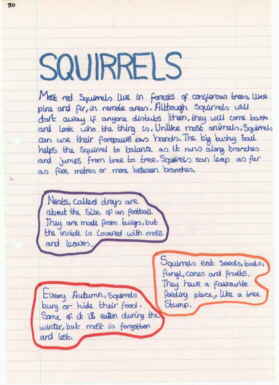 SQUIRRELS
Most red Squirrels live in forests of coniferous trees like
pine and fir, in remote areas. Although Squirrels will
dart away if anyone disturbs them, they will come back
and look who the thing is. Unlike most animals, Squirrels
can use their forepaws as hands. The big bushy tail
helps the Squirrel to balance as it runs along branches
and jumps from tree to tree. Squirrels can leap as far
as five metres or more between branches.
Nests, called dreys are
about the Size of an football.
They are made from twigs, but
the inside is covered with moss
and leaves.
Squirrels eat Seeds, buds,
fungi, cones and fruits.
They have a favourite
feeding place, like a tree
Stump.
Every Autumn, Squirrels
bury or hide their food.
Some of it is eaten during the
winter, but most is forgotten
and left.